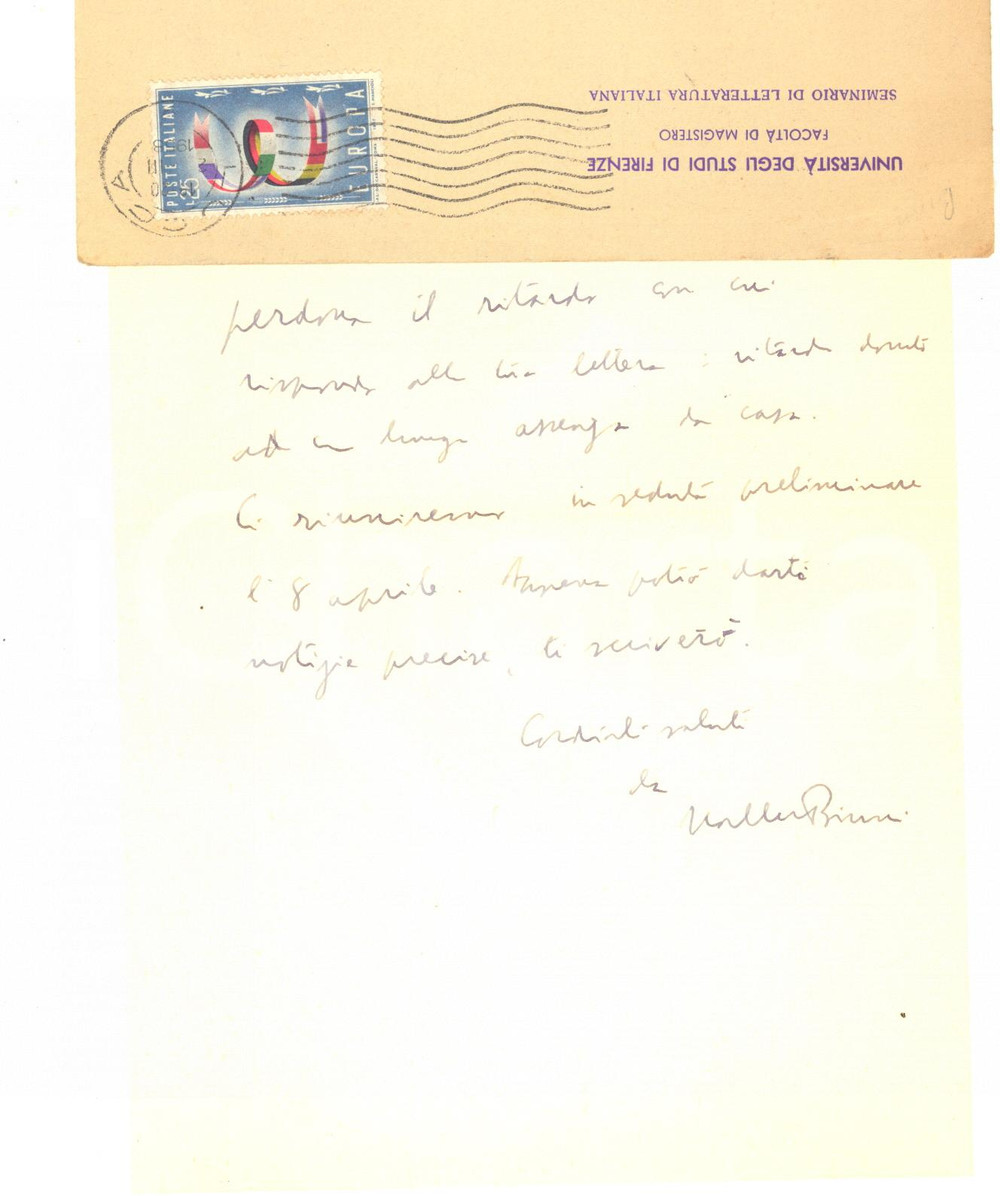 SEMINARIO DI LETTERATURA ITALIANA
FACOLTÀ DI MAGISTERO
UNIVERSITÀ DEGLI STUDI DI FIRENZE
POSTE ITALIANE
L. 25
EUROPA
perdona il ritardo con cui
rispondo alla tua lettera: ritardo dovuto
ad una lunga assenza da casa.
Ci riuniremo in seduta preliminare
l'8 aprile. Appena potrò darti
notizie precise, ti scriverò.
Cordiali saluti
da
Walter Binni